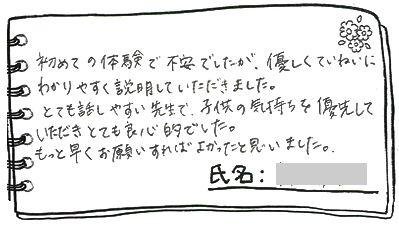 初めての体験で不安でしたが、優しくていねいに
わかりやすく説明していただきました。
とても話しやすい先生で、子供の気持ちを優先して
いただきとても良心的でした。
もっと早くお願いすればよかったと思いました。
氏名：